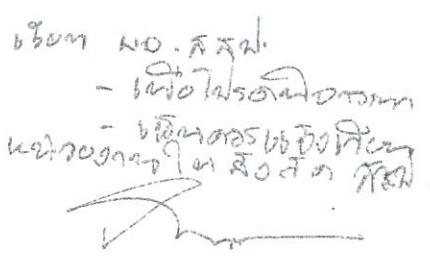 เรียน ผอ. สสป.
- เพื่อโปรดพิจารณา
- เห็นควรแจ้งเวียน
หน่วยงานในสังกัด